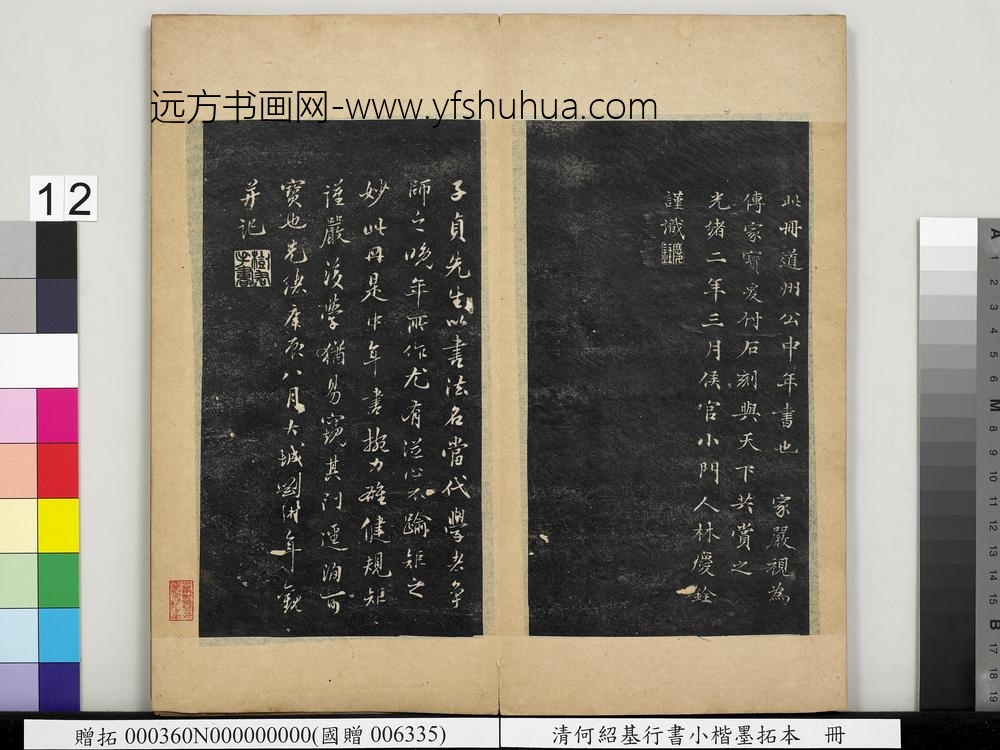 远方书画网-www.yfshuhua.com
12
此冊道州公中年書也 家嚴視為
傳家寶爰付石刻與天下共賞之
光緒二年三月侯官小門人林慶銓
謹識
子貞先生以書法名當代學者爭
師之晚年所作尤有從心不踰矩之
妙此冊是中年書擬力雄健規矩
謹嚴後學猶易窺其門逕洵可
寶也光緒庚辰八月大城劉樹年觀
并記
A 1 2 3 4 5 6 M 8 9 10 11 12 13 14 15 B 17 18 19
贈拓 000360N000000000(國贈 006335)
清何紹基行書小楷墨拓本 冊